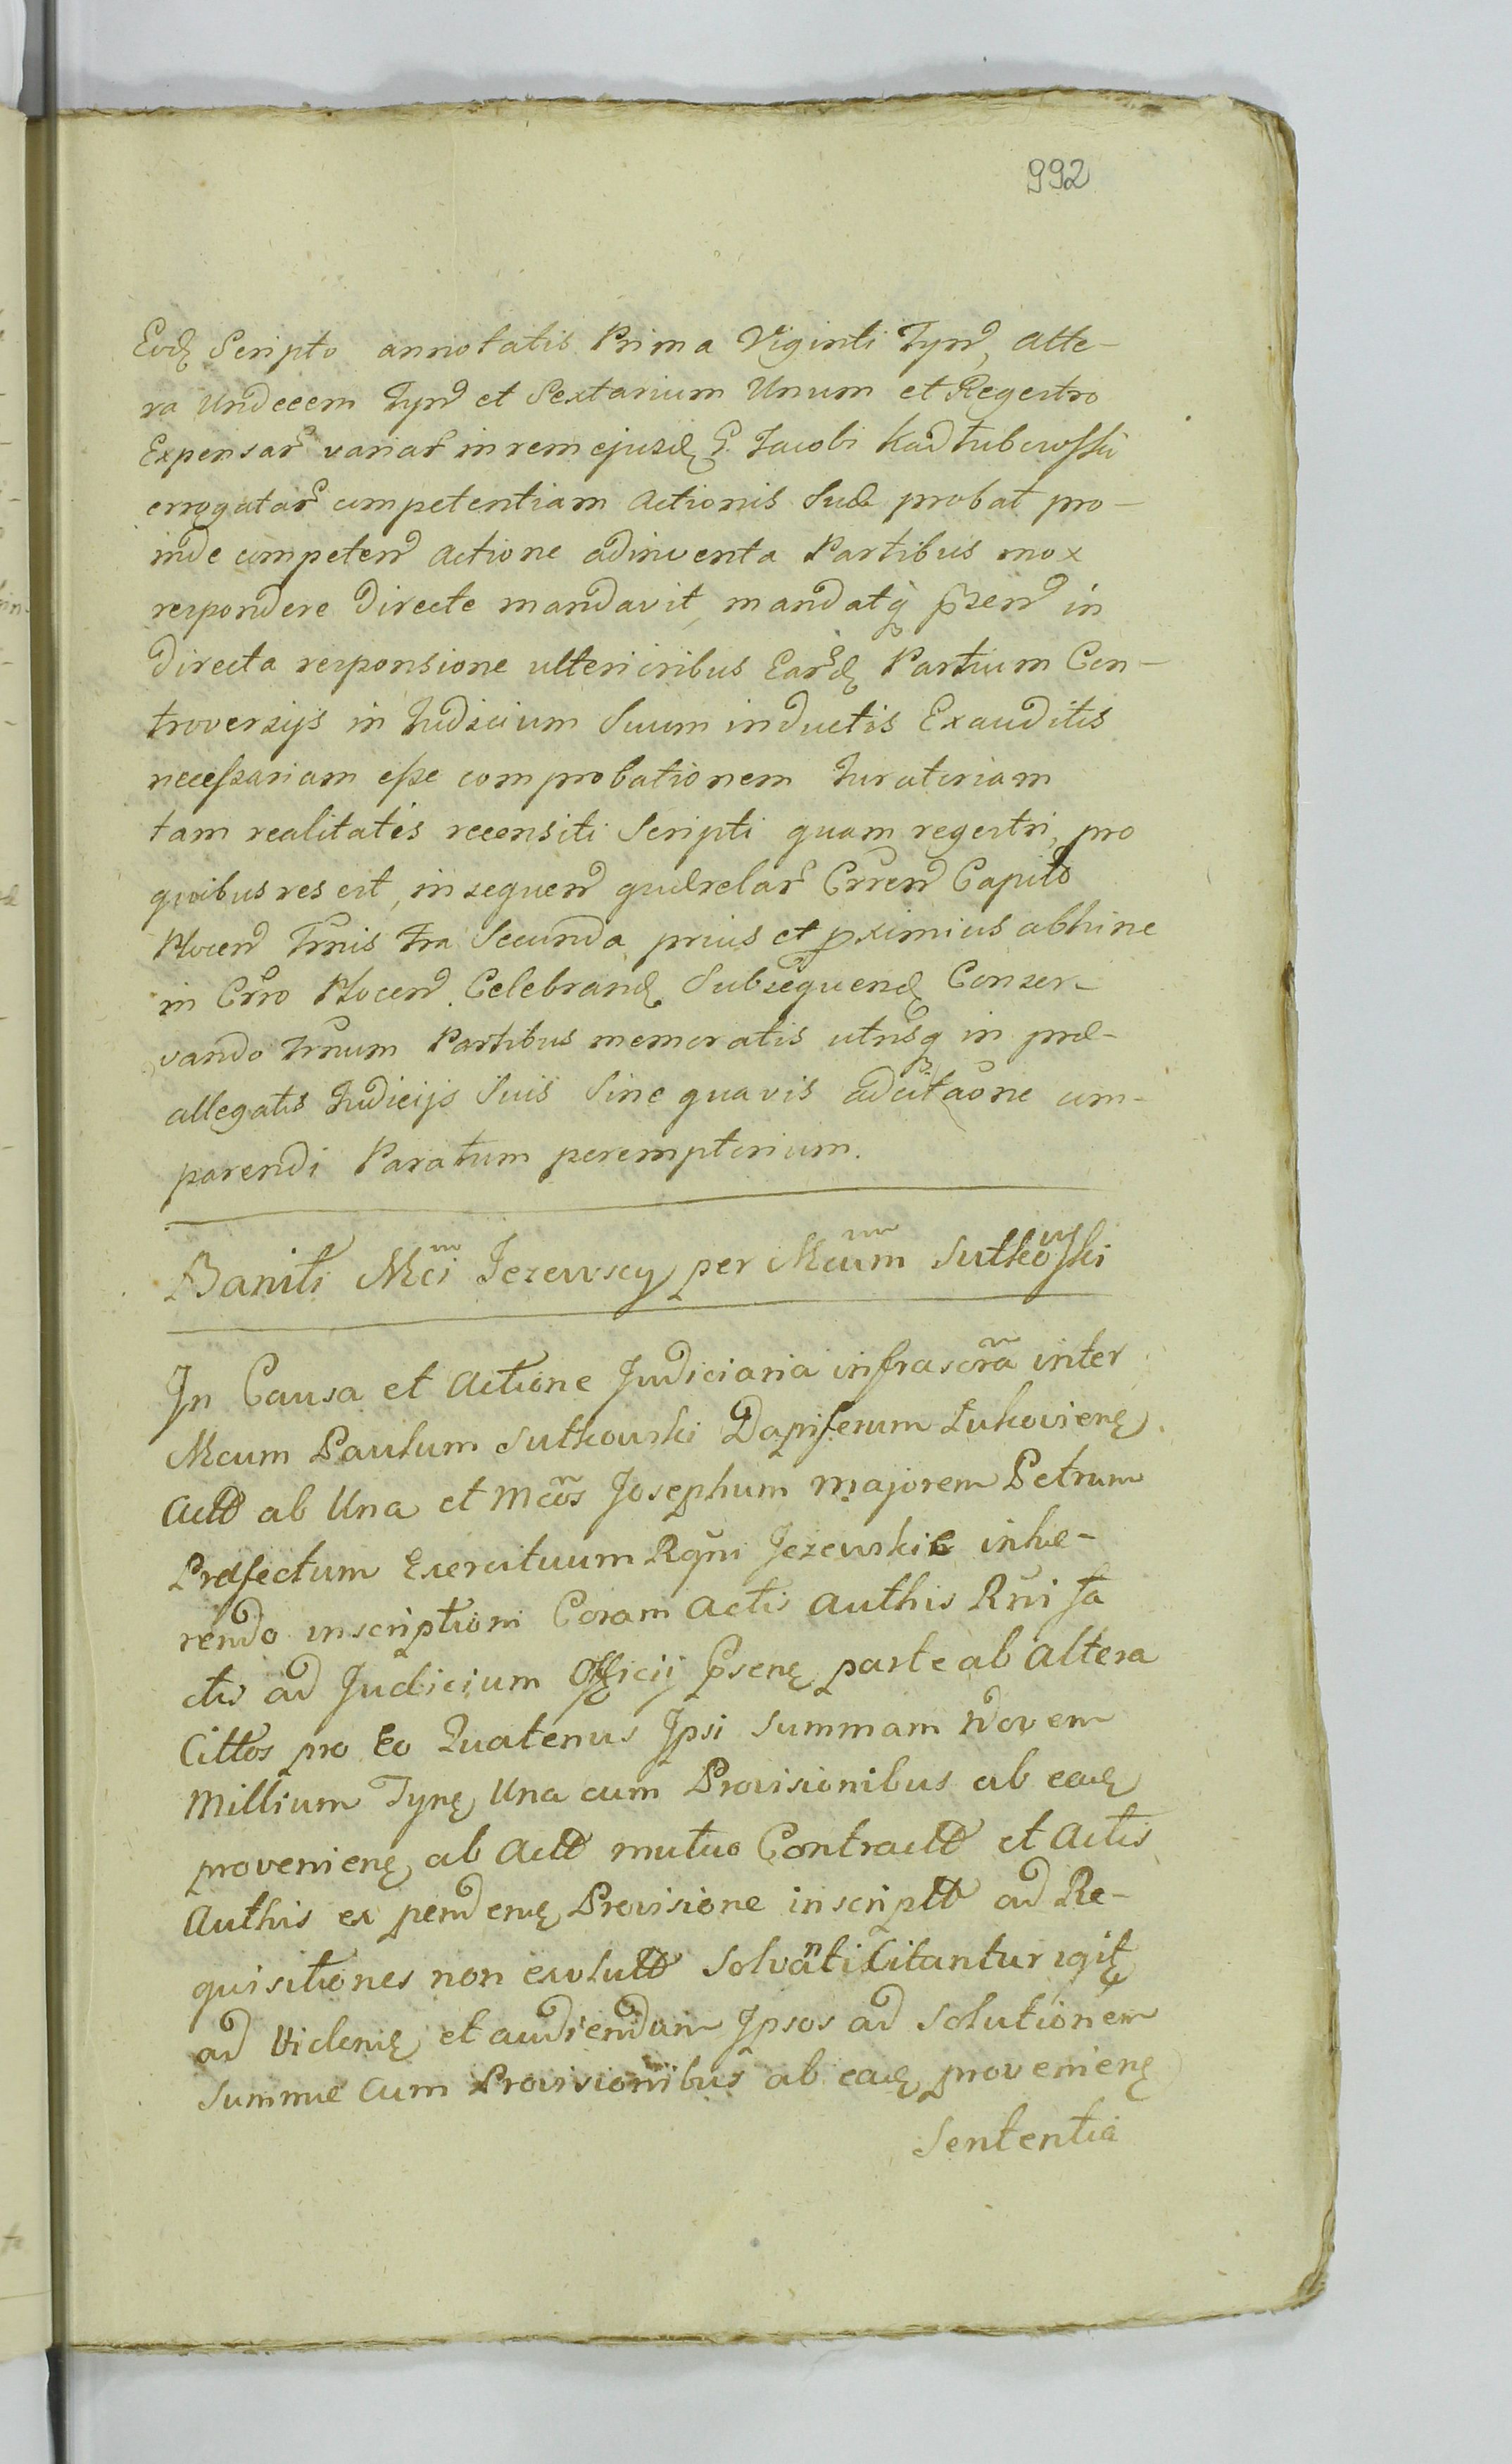 992
Eod Scripto annotatis Prima Viginti Tynf, alte-
ra Undecem Tynf et Sextarium Unum et Regestro
Expensar variar in rem ejusd G. Jacobi Kadłubowski
errogatar competentiam Actionis Suæ probat pro-
inde competen actione adinventa Partibus mox
respondere Directe mandavit, mandatq pzen in
Directa responsione ulterioribus Ear'd Partium Con-
troversijs in Judicium Suum inductis Exauditis
necessariam esse comprobationem Juratoriam
tam realitatis recensiti Scripti quam regestri, pro
quibus res est, in sequen quærelar Crren Capitt
Plocen Trnis Fra Secunda prius et pximius abhinc
in Crro Plocen Celebrand Subsequend Conser-
vando Trnum Partibus memoratis utrisq in præ-
allegatis Judicijs Suis Sine quavis adcitaone com-
parendi Paratum peremptorium.
Baniti Mci Jezewscy per Mcum Sutkowski
In Causa et Actione Judiciaria infrascra inter
Mcum Paulum Sutkowski Dapiferum Lukovien
Actt ab Una et Mcos Josephum majorem Petrum
Præfectum Exercituum Rgni Jezewskie inhæ-
rendo inscriptioni Coram Actis Authis Rni fa
ctis ad Judicium Officij Psen parte ab altera
Cittos pro Eo Quatenus Ipsi Summam Novem
Millium Tyn Una cum Provisionibus ab ead
provenien ab Actt mutuo Contractt et Actis
Authis ex penden Provisione inscriptt ad Re-
quisitiones non exolutt Solvanti Citantur igit
ad Viden et audiendum Ipsos ad Solutionem
Summæ Cum Provisionibus ab ead provenien
Sententia